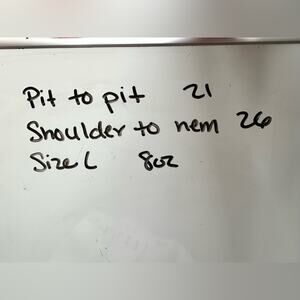 Pit to pit 21
Shoulder to hem 26
Size L 8oz